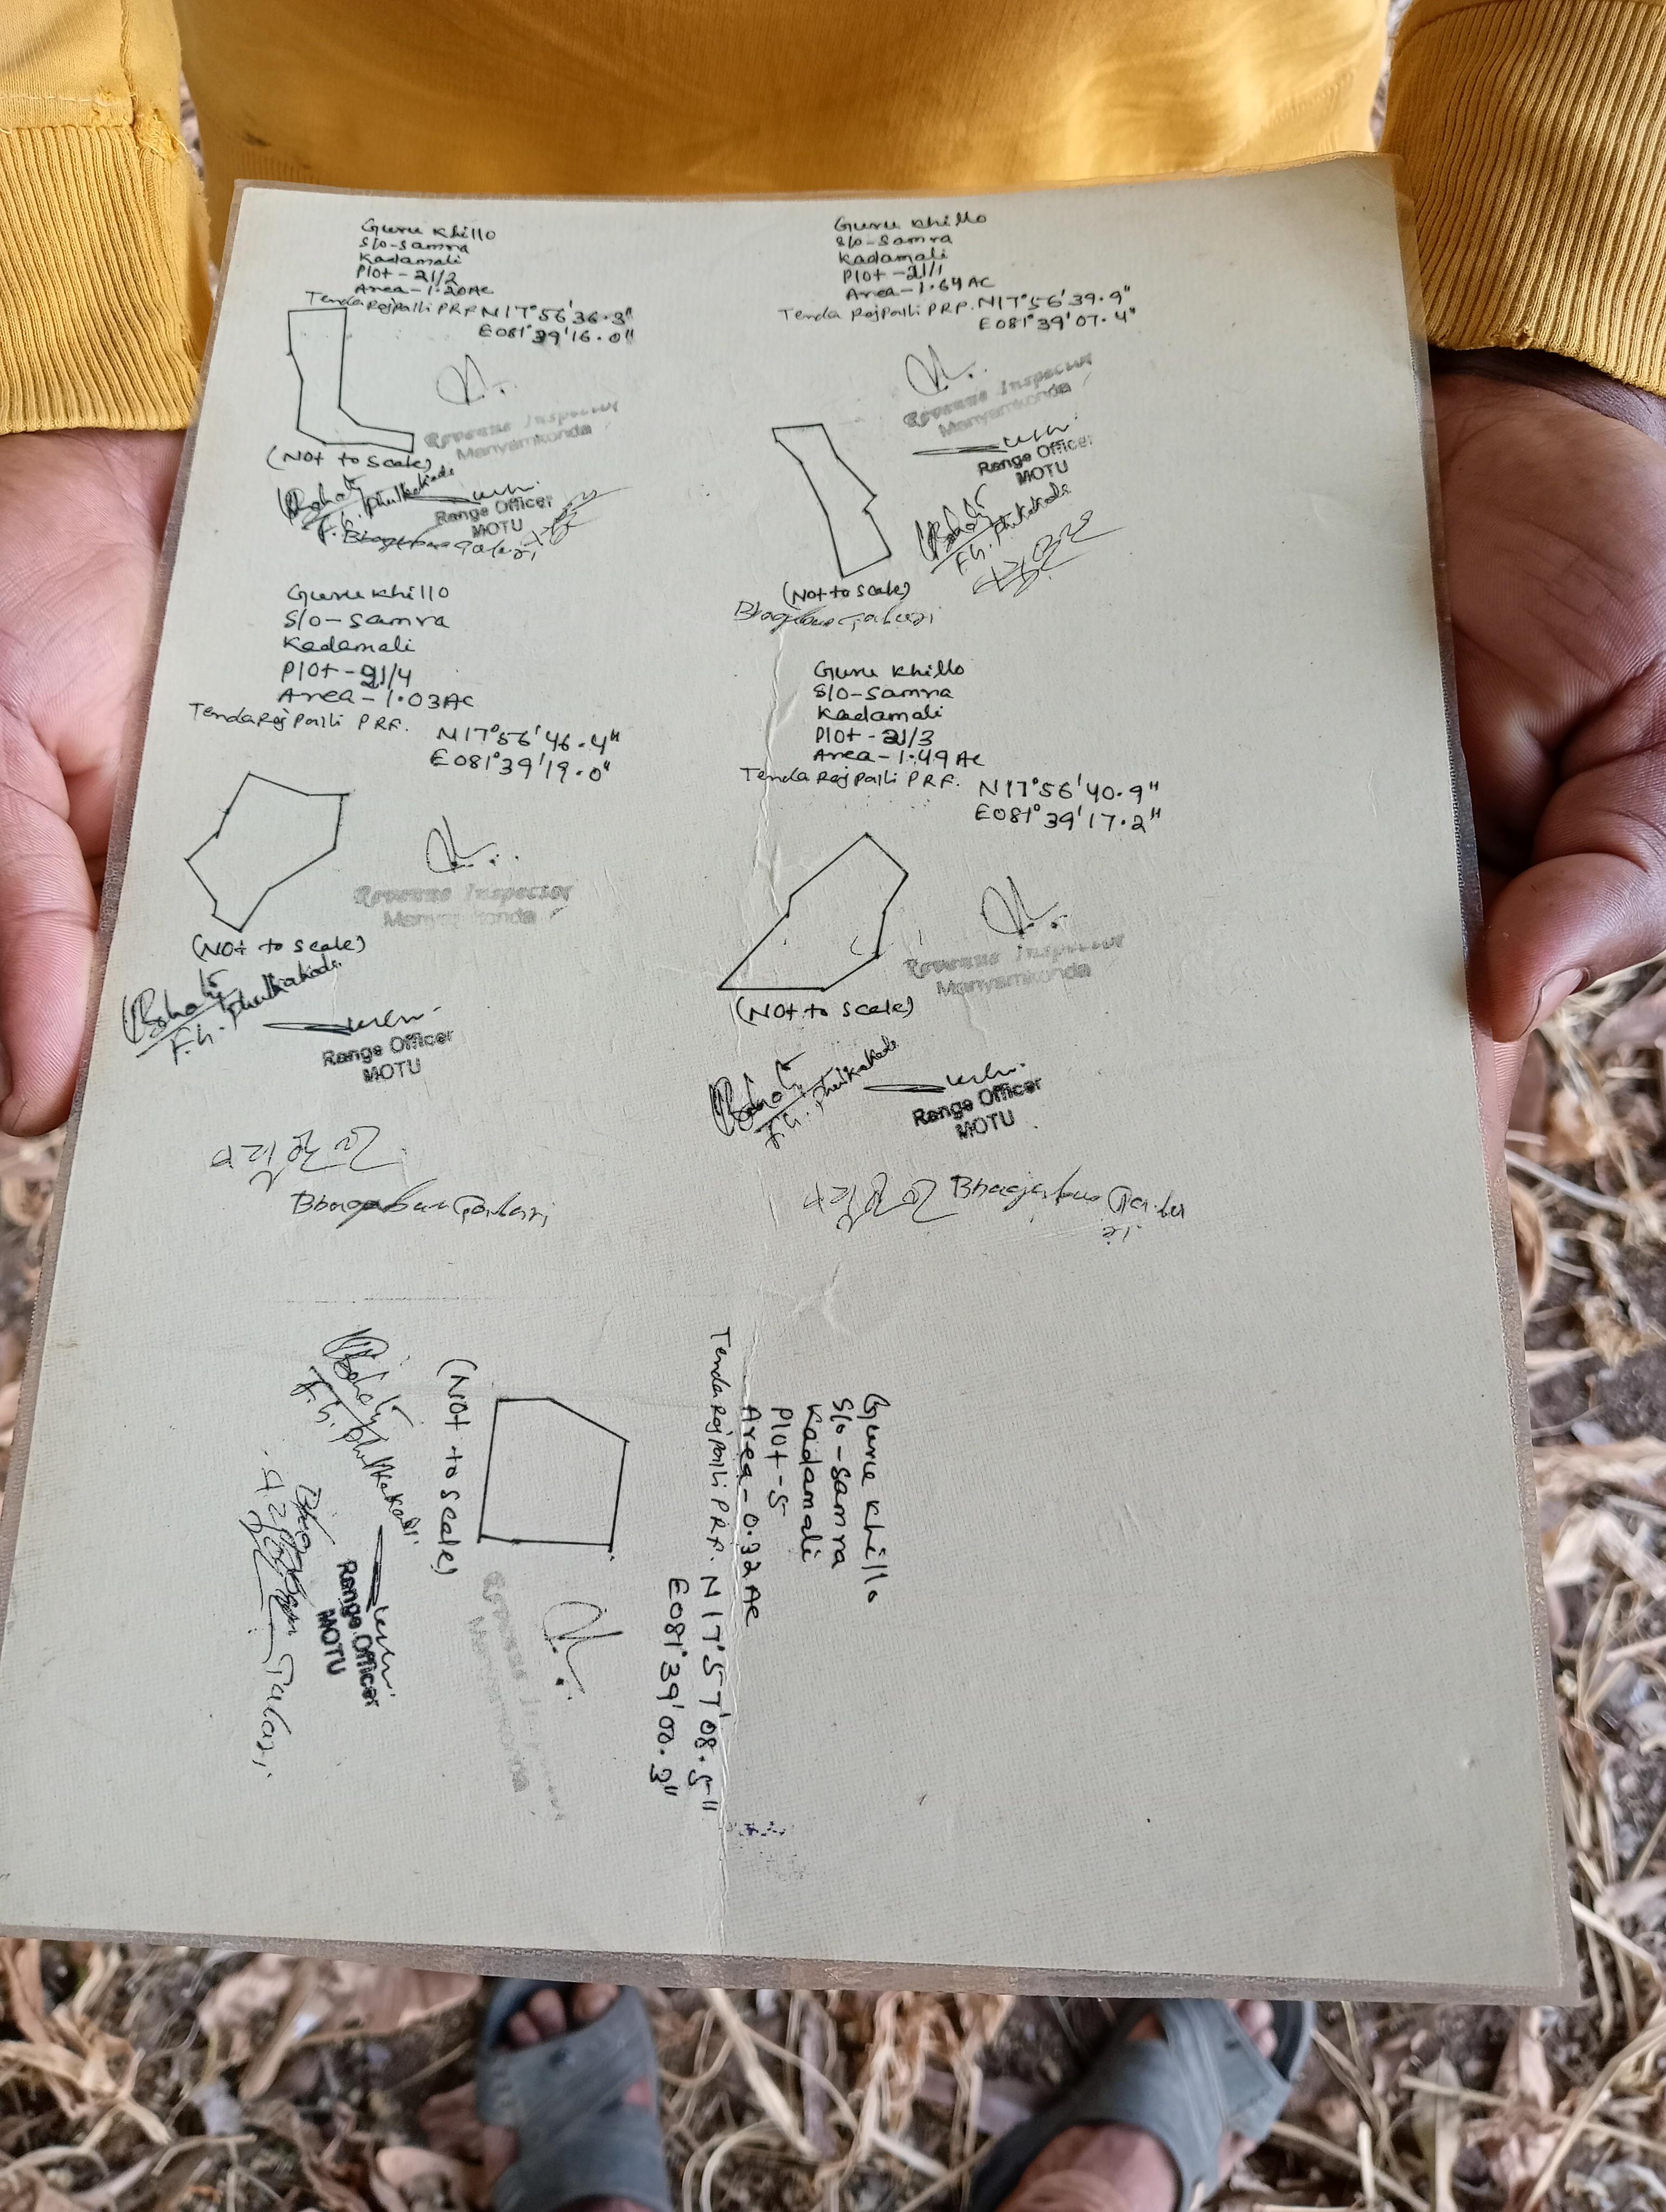 Guru Khillo
S/o-Samra
Kadamali
Plot-21/2
Area-1.20Ac
Tenda Rajpalli PRF N17°56'36.3"
E081°39'16.0"
Revenue Inspector
Manyamkonda
(Not to scale)
F.G. Phulkakada
Range Officer
MOTU
Guru Khillo
S/o-Samra
Kadamali
Plot-21/1
Area-1.64Ac
Tenda Rajpalli PRF. N17°56'39.9"
E081°39'07.4"
Revenue Inspector
Manyamkonda
Range Officer
MOTU
F.G. Phulkakada
(Not to scale)
Guru Khillo
S/o-Samra
Kadamali
Plot-21/4
Area-1.03Ac
Tenda Rajpalli PRF.
N17°56'46.4"
E081°39'19.0"
Revenue Inspector
Manyamkonda
(Not to scale)
F.G. Phulkakada
Range Officer
MOTU
Guru Khillo
S/o-Samra
Kadamali
Plot-21/3
Area-1.49Ac
Tenda Rajpalli PRF.
N17°56'40.9"
E081°39'17.2"
Revenue Inspector
Manyamkonda
(Not to scale)
F.G. Phulkakada
Range Officer
MOTU
Guru Khillo
S/o-Samra
Kadamali
Plot-5
Area-0.32Ac
Tenda Rajpalli PRF. N17°57'08.5"
E081°39'00.3"
(Not to scale)
F.G. Phulkakada
Range Officer
MOTU